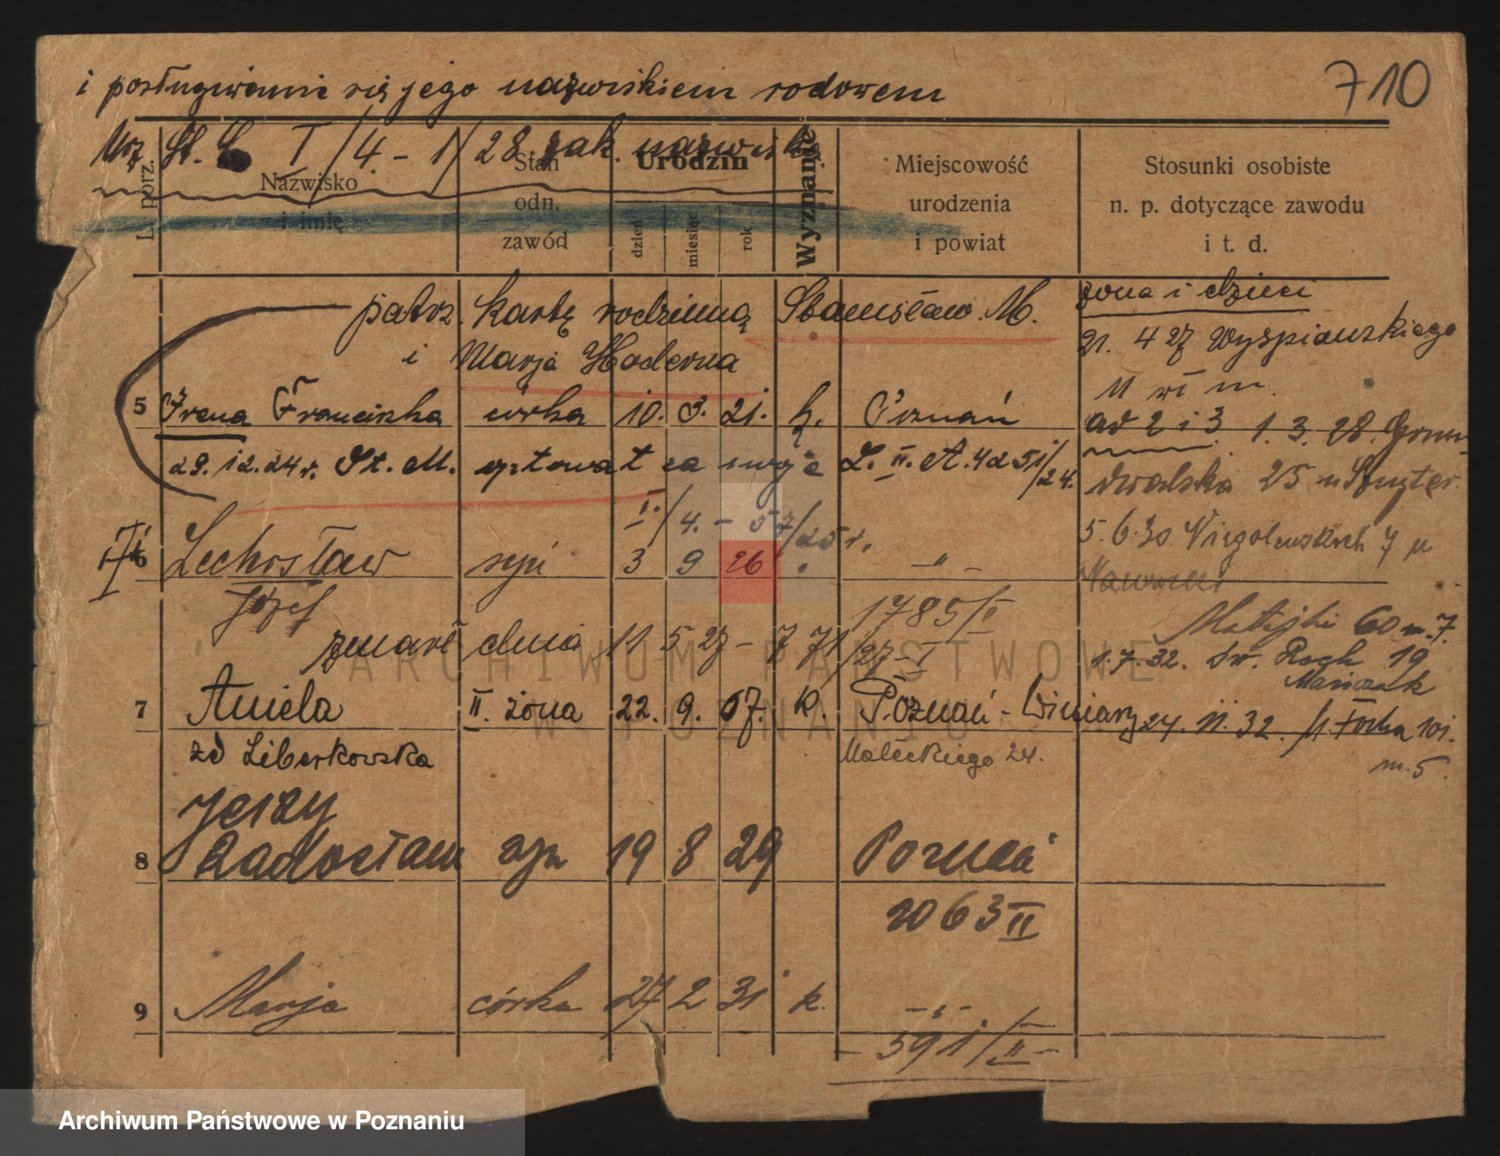 710
i posługiwanie się jego nazwiskiem rodowem
Urz. St. I/4-1/28 zak. nazwisk
L. porz.
Nazwisko i imię
Stan odn. zawód
Urodzin
dzień miesiąc rok
Wyznanie
Miejscowość urodzenia i powiat
Stosunki osobiste n. p. dotyczące zawodu i t. d.
patrz kartę rodzinną Stanisław M.
i Marja Hoderna
żona i dzieci
21. 4 27 Wyspiańskiego
11 m.
5 Irena Franciszka córka 10. 3. 21. k. Poznań
ad 2 i 3 1. 3. 28. Grun-
29. 12. 24 r. St. M. optował za swoje L. II. A. 4251/24.
waldzka 25
I./4. - 57/25 r.
6 Lechosław syn 3 9 26 " - " -
5. 6. 30 Niegolewskich 7 u
Nawrocki
Józef
1785/II
zmarł dnia 11 5 27 - 7 71/27-I
Matejki 60 m. 7.
1. 7. 32. Św. Roch 19
Marczak
7 Aniela II. żona 22. 9. 07. k. Poznań - Winiary
24. 11. 32. Focha 101.
m. 5.
zd Liberkowska
Małeckiego 24.
Jerzy
8 Radosław syn 19 8 29 Poznań
2063 II
9 Marja córka 27 2 31 k. - " -
- 591/II -
ARCHIWUM PAŃSTWOWE
W POZNANIU
Archiwum Państwowe w Poznaniu